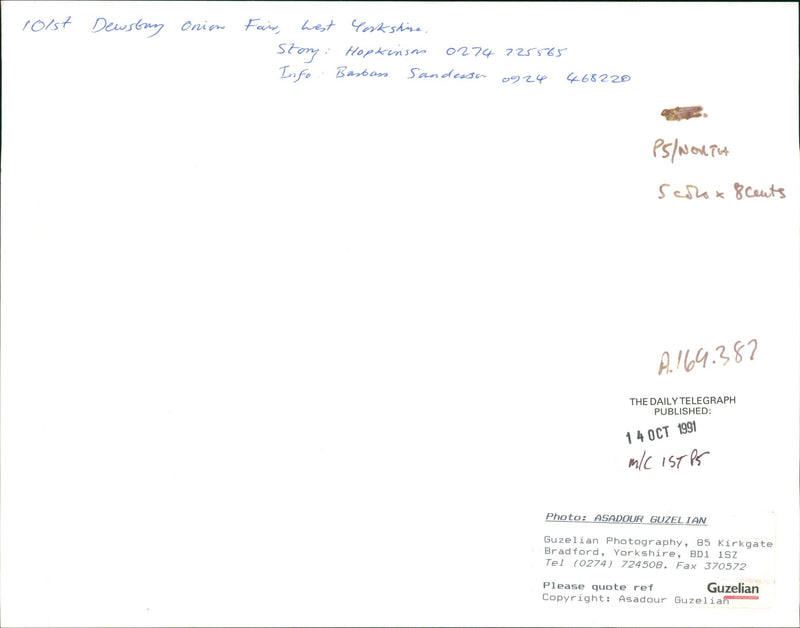 101st Dewsbury Onion Fair, West Yorkshire.
Story: Hopkinson 0274 725565
Info: Barbara Sanderson 0924 468220
P5/NORTH
5 cols x 8cents
A.164.387
THE DAILY TELEGRAPH
PUBLISHED:
14 OCT 1991
M/C 1ST P5
Photo: ASADOUR GUZELIAN
Guzelian Photography, 85 Kirkgate
Bradford, Yorkshire, BD1 1SZ
Tel (0274) 724508. Fax 370572
Please quote ref
Guzelian
Copyright: Asadour Guzelian